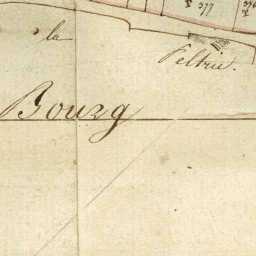 377
la
Peltrie.
Bourg